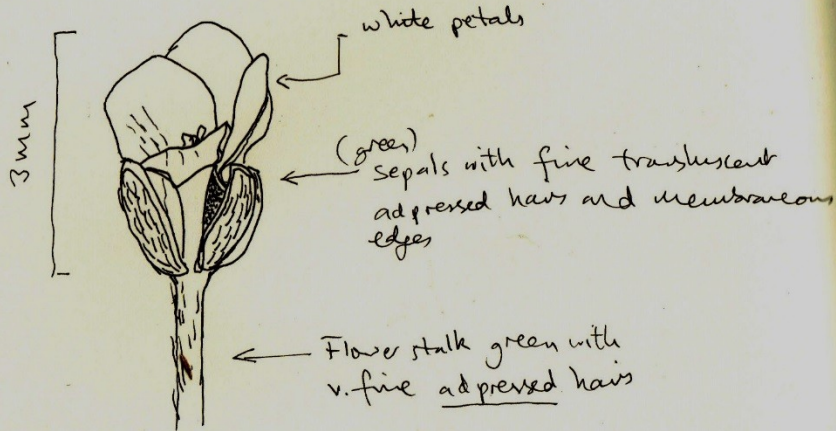 white petals
3mm
(green)
sepals with fine transluscent
adpressed hairs and membraneous
edges
Flower stalk green with
v. fine adpressed hairs